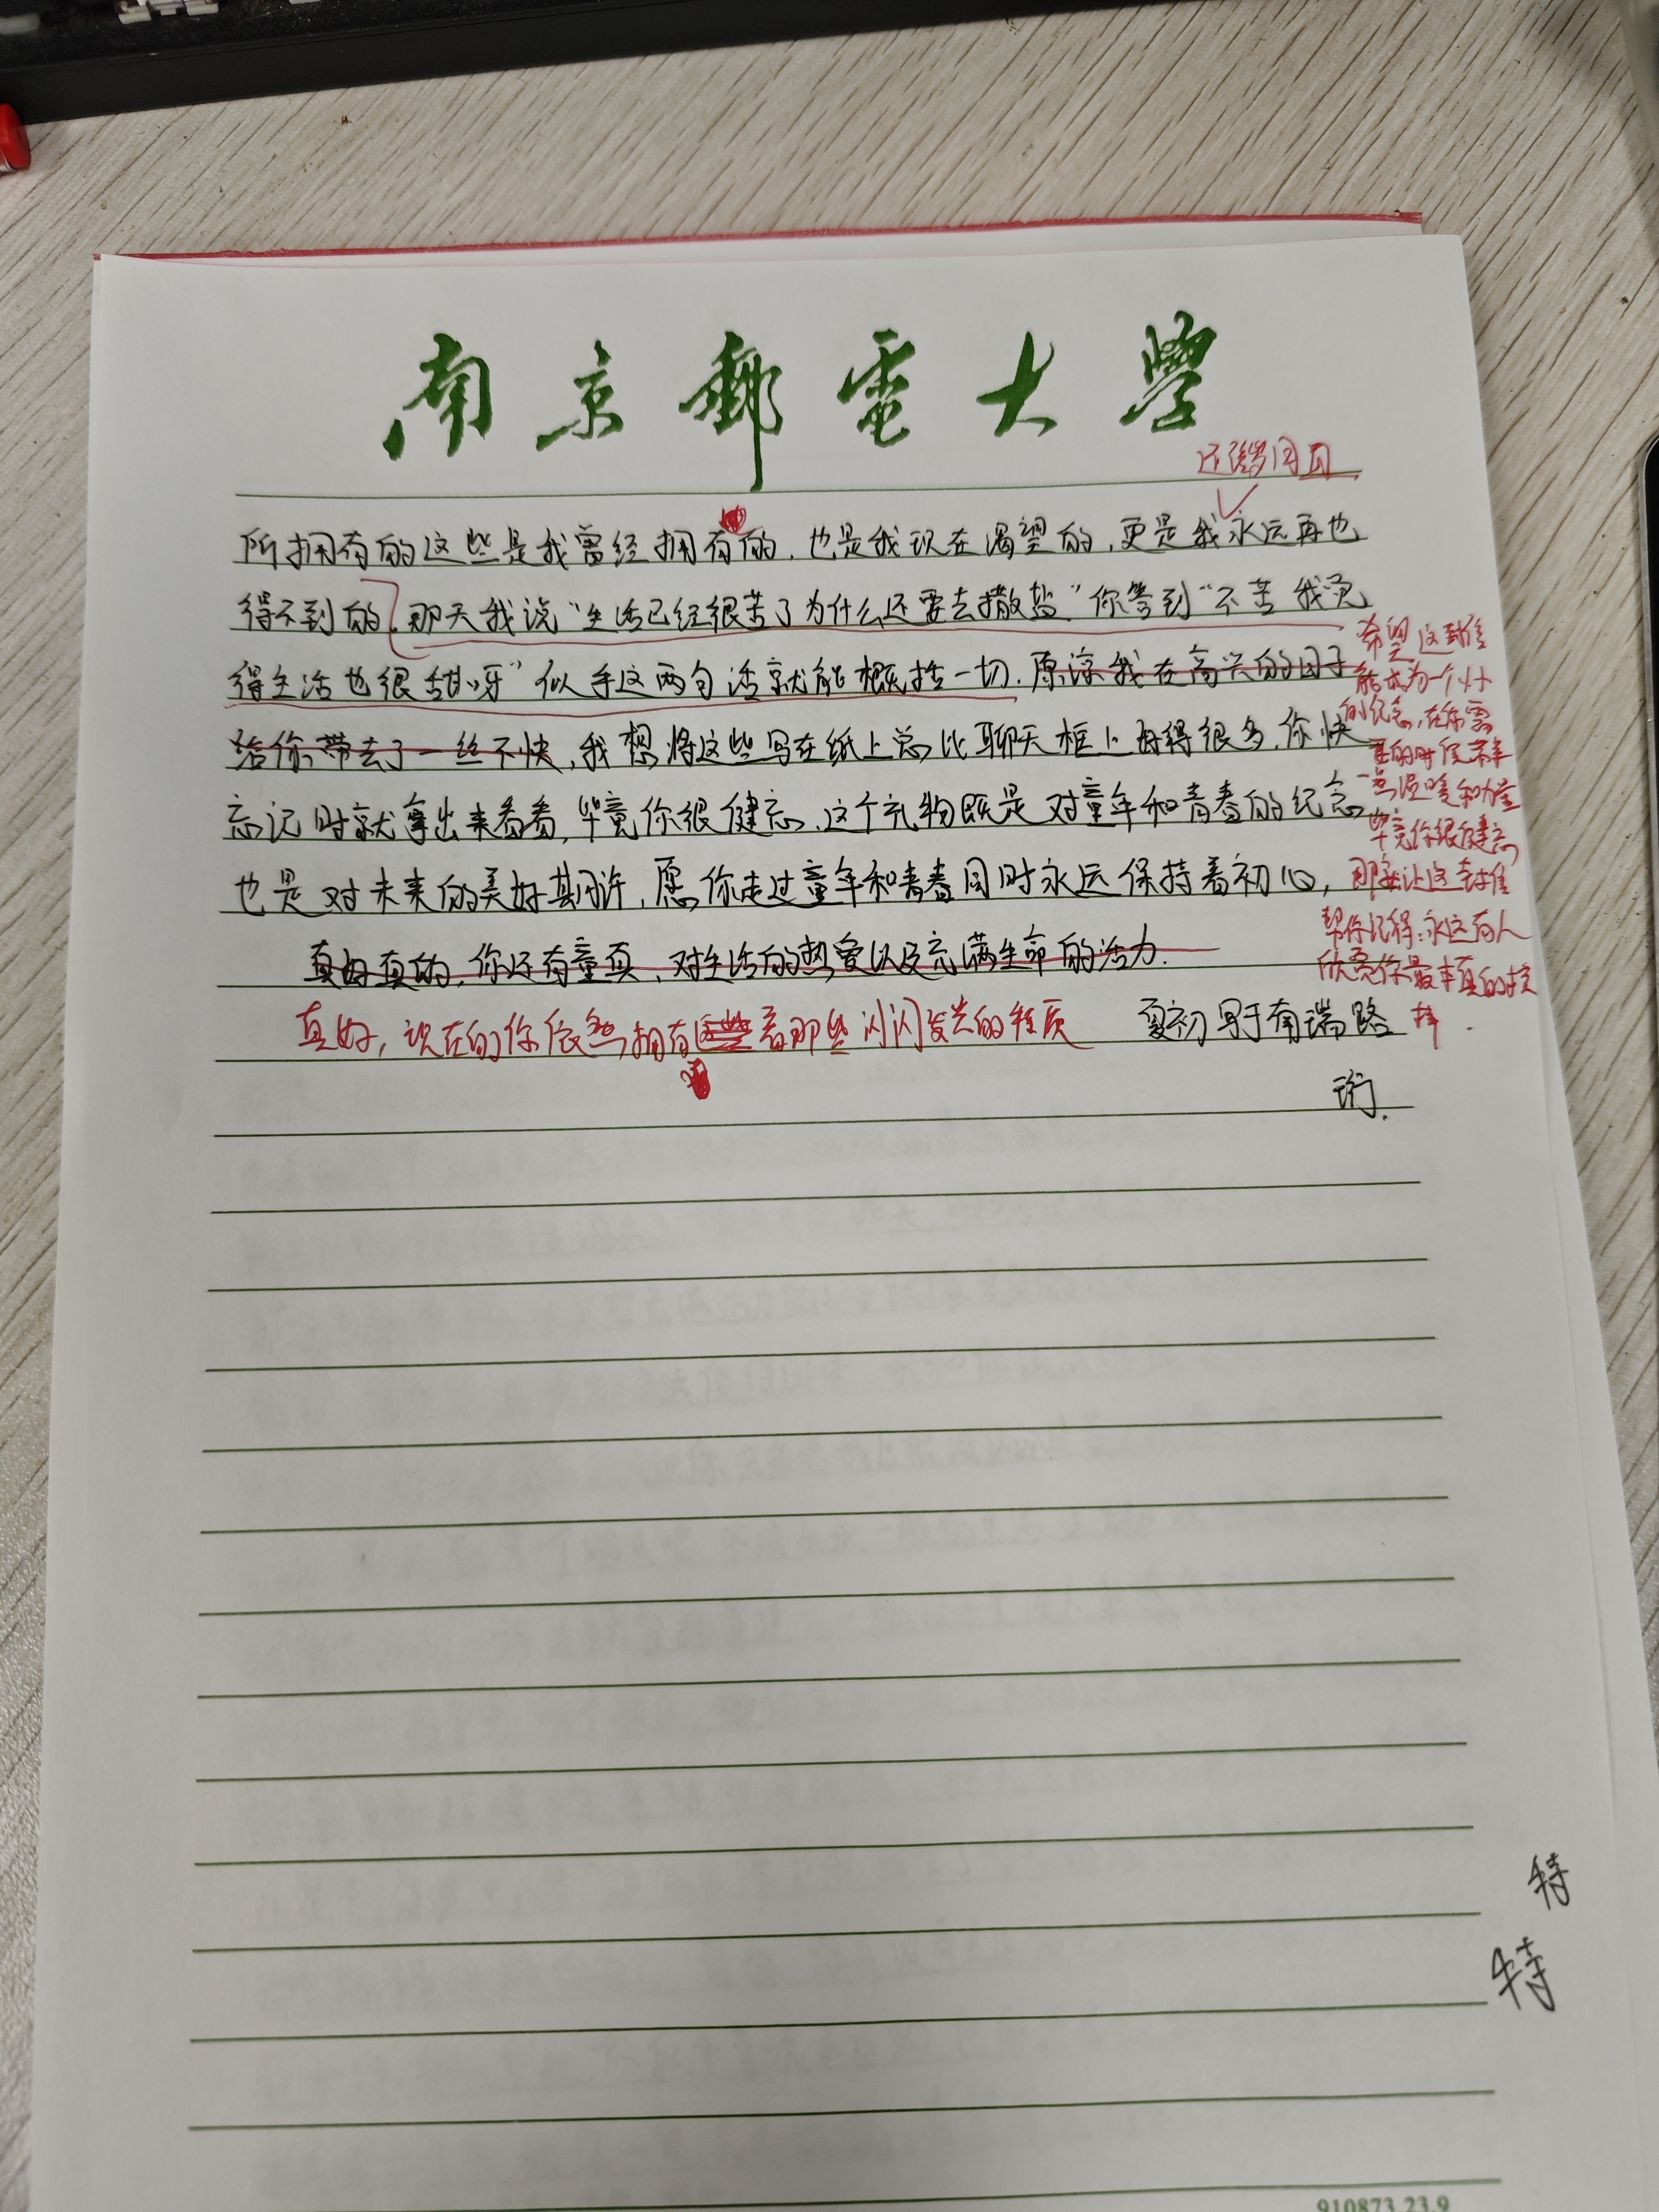 南京郵電大學
所拥有的这些是我曾经拥有的，也是我现在渴望的，更是我永远再也
得不到的．那天我说“生活已经很苦了为什么还要去撒盐”你答到“不苦 我觉
得生活也很甜呀”似乎这两句话就能概括一切．原谅我在高兴的日子
给你带去了一丝不快，我想将这些写在纸上总比聊天框上好得很多．你快
忘记时就拿出来看看，毕竟你很健忘．这个礼物既是对童年和青春的纪念
也是对未来的美好期许．愿你走过童年和青春同时永远保持着初心，
真好真的，你还有童真、对生活的热爱以及充满生命的活力．
真好，现在的你依然拥有这些着那些闪闪发光的特质
夏初写于南瑞路
珩．
希望这封信
能成为一个小小
的纪念，在你需
要的时候带来
一点温暖和力量
毕竟你很健忘，
那就让这封信
帮你记得：永远有人
欣赏你最本真的模
样．
特
特
910873.23.9